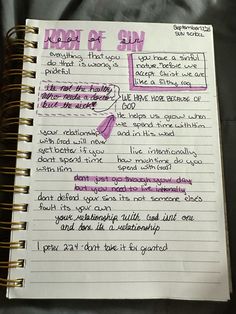 September 17
SUN SCHOOL
ROOT OF SIN
everything that you
do that is wrong is
prideful
you have a sinful
nature, before we
accept Christ we are
like a filthy rag
its not the healthy
who needs a doctor
but the sick!
WE HAVE HOPE BECAUSE OF
GOD
He helps us grow when
we spend time with Him
and in His word
your relationship
with God will never
get better if you
dont spend time
with Him
live intentionally
how much time do you
spend with God?
dont just go through your day
but you need to live internally
dont defend your sins its not someone else's
fault its your own
your relationship with God isnt one
and done its a relationship
1 peter 2:24 - dont take it for granted